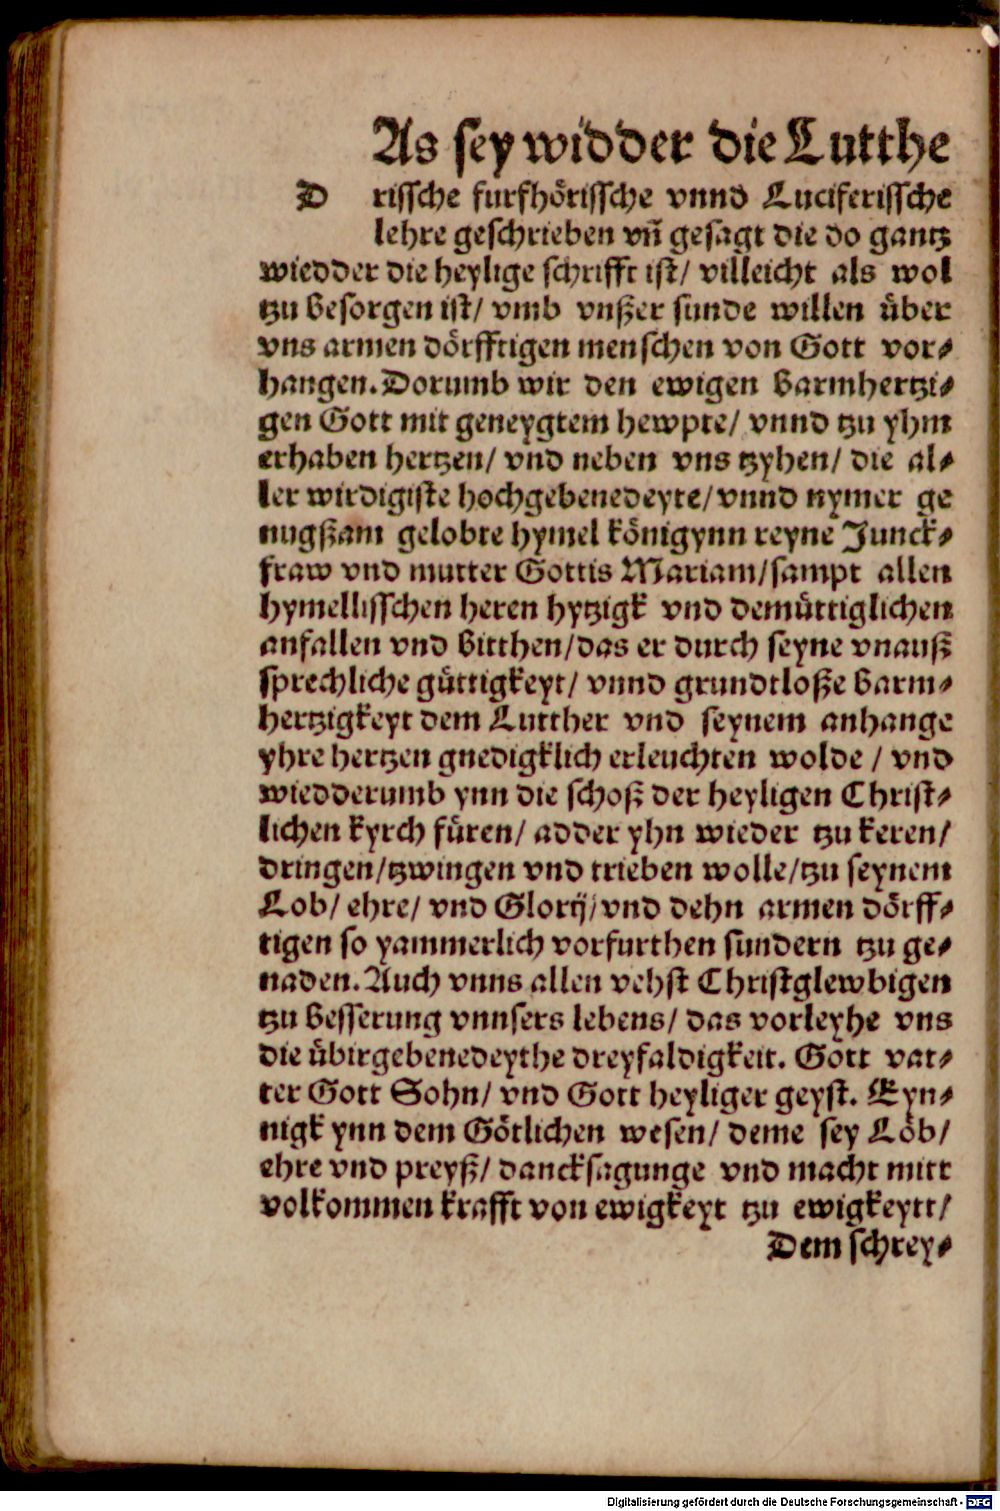 As sey widder die Lutthe
D rissche furfhörissche vnnd Luciferissche
lehre geschrieben vñ gesagt die do gantz
wiedder die heylige schrifft ist/ villeicht als wol
tzu besorgen ist/ vmb vnßer sunde willen über
vns armen dörfftigen menschen von Gott vor⸗
hangen. Dorumb wir den ewigen barmhertzi⸗
gen Gott mit geneygtem hewpte/ vnnd tzu yhm
erhaben hertzen/ vnd neben vns tzyhen/ die al⸗
ler wirdigiste hochgebenedeyte/ vnnd nymer ge
nugßam gelobte hymel königynn reyne Junck⸗
fraw vnd mutter Gottis Mariam/ sampt allen
hymellisschen heren hytzigk vnd demüttiglichen
anfallen vnd bitthen/ das er durch seyne vnauß
sprechliche güttigkeyt/ vnnd grundtloße barm⸗
hertzigkeyt dem Lutther vnd seynem anhange
yhre hertzen gnedigklich erleuchten wolde / vnd
wiedderumb ynn die schoß der heyligen Christ⸗
lichen kyrch füren/ adder yhn wieder tzu keren/
dringen/ tzwingen vnd trieben wolle/ tzu seynem
Lob/ ehre/ vnd Glorij/ vnd dehn armen dörff⸗
tigen so yammerlich vorfurthen sundern tzu ge⸗
naden. Auch vnns allen vehst Christglewbigen
tzu besserung vnnsers lebens/ das vorleyhe vns
die übirgebenedeythe dreyfaldigkeit. Gott vat⸗
ter Gott Sohn/ vnd Gott heyliger geyst. Eyn⸗
nigk ynn dem Götlichen wesen/ deme sey Löb/
ehre vnd preyß/ dancksagunge vnd macht mitt
volkommen krafft von ewigkeyt tzu ewigkeytt/
Dem schrey⸗
Digitalisierung gefördert durch die Deutsche Forschungsgemeinschaft - DFG